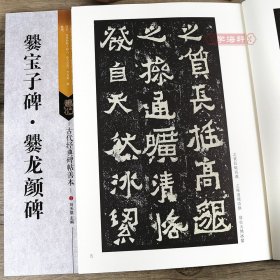 爨宝子碑·爨龙颜碑
古代经典碑帖善本
之質長挺高邈
之操通曠清恪
發自天然冰潔